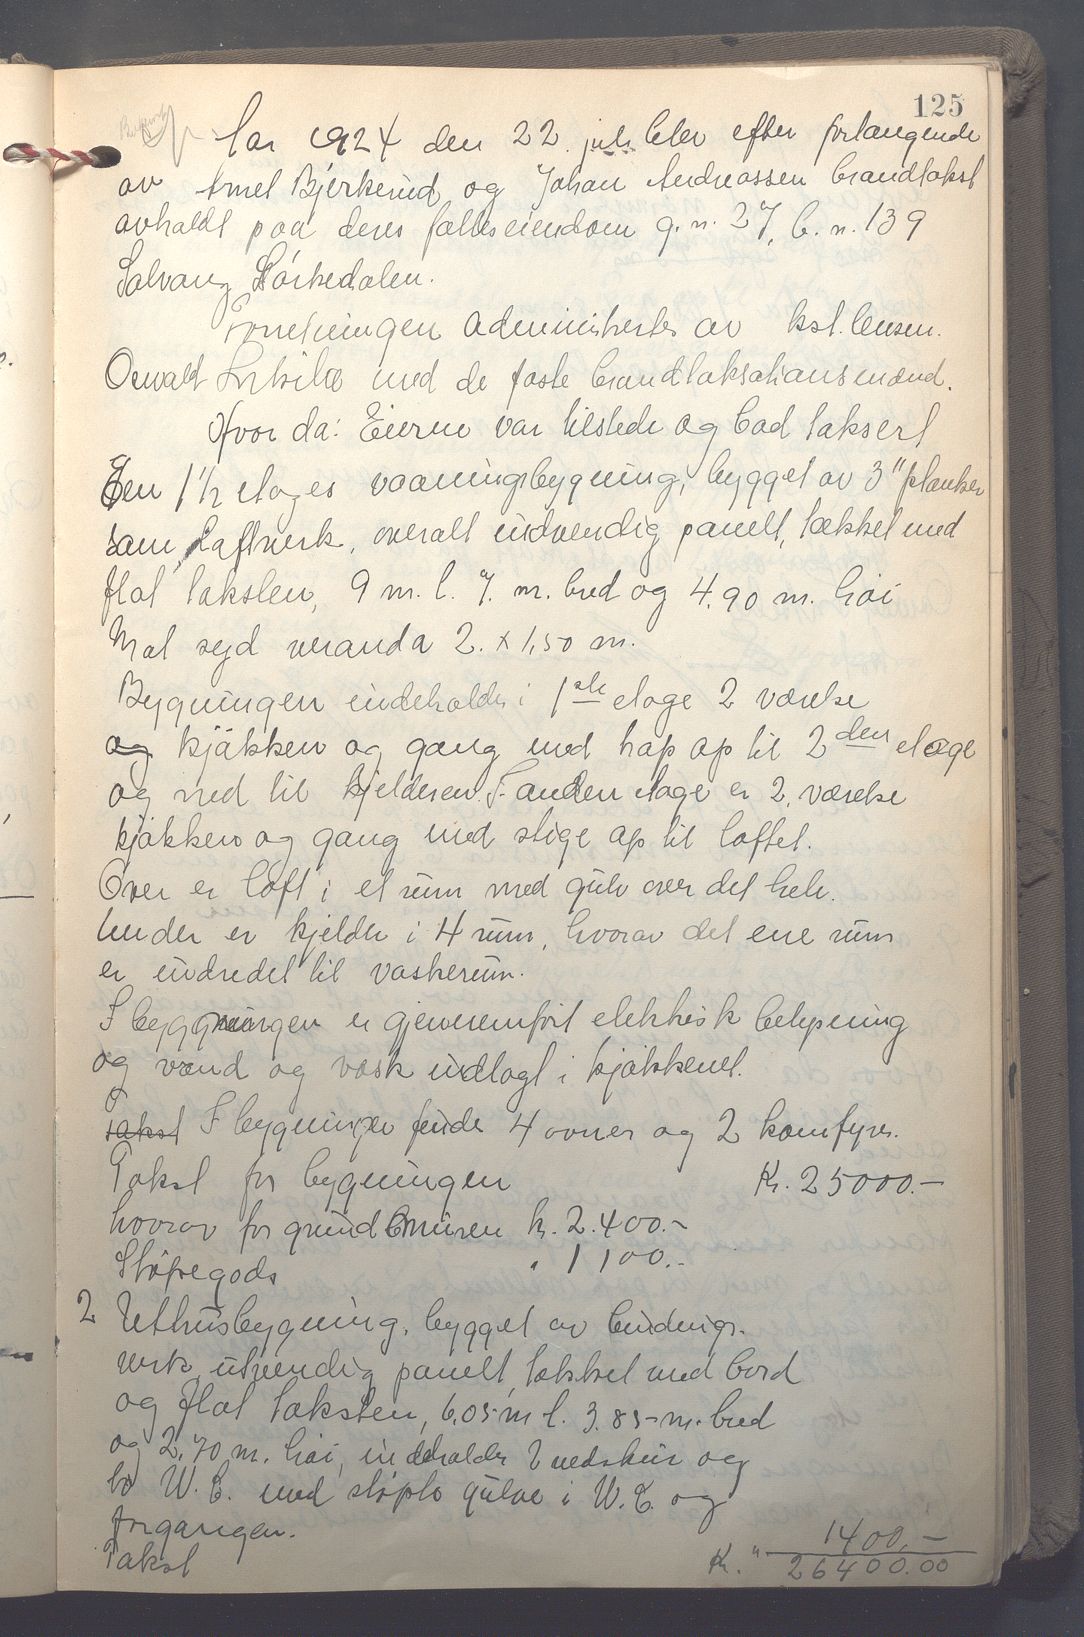 125
Aar 1924 den 22. juli blev efter forlangende
av Emet Bjerkerud og Johan Andreassen brandtakst
avholdt paa deres fælleseiendom g.n. 27, b.n. 139
Solvang Sørkedalen.
Forretningen administrertes av kst. lensm.
Oswald med de faste brandtaksationsmænd.
Hvor da: Eierne var tilstede og bad taksert
En 1 1/2 etages vaaningsbygning, bygget av 3" planker
som Laftverk, overalt indvendig panelt, tækket med
flat taksten, 9 m. l. 7. m. bred og 4.90 m. høi
Mot syd veranda 2. x 1,50 m.
Bygningen indeholder i 1ste etage 2 værelse
og kjøkken og gang med trap op til 2den etage
og ned til kjelderen. I anden etage er 2, værelse
kjøkken og gang med stige op til loftet.
Over er loft i et rum med gulv over det hele.
Under er kjelder i 4 rum, hvorav det ene rum
er indredet til vaskerum.
I byggningen er gjennemført elektrisk belysning
og vand og vask indlagt i kjøkkenet.
Takst I bygningen finde 4 ovner og 2 komfyrer.
Takst for bygningen Kr. 25000.-
hvorav for grundmuren kr. 2.400.-
Støpegods " 1100.-
2 Uthusbygning, bygget av bindings-
verk, utvendig panelt, tækket med bord
og flat taksten, 6,05 m l. 3.85 m. bred
og 2,70 m. høi, indeholder vedskur og
to W.C. med støpte gulve i W.C. og
forgangen.
Takst " 1400.-
Kr. 26400.00